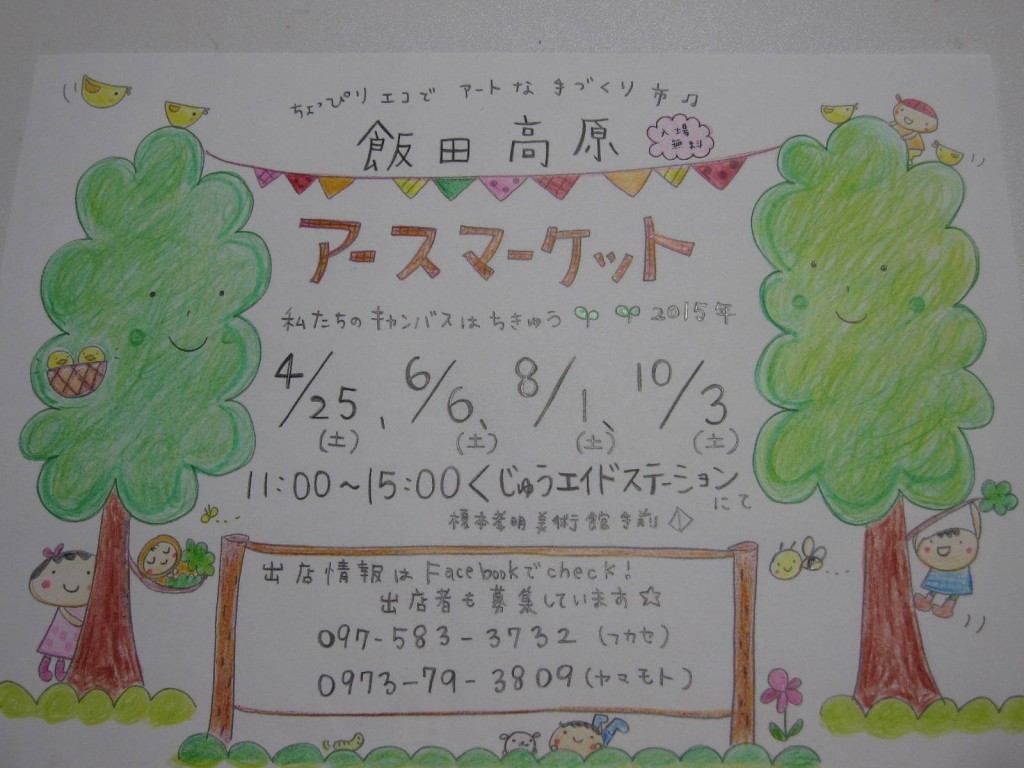 ちょっぴりエコで アートな 手づくり市♫
飯田高原
入場
無料
アースマーケット
私たちのキャンバスはちきゅう 2015年
4/25、6/6、8/1、10/3
(土) (土) (土) (土)
11:00～15:00くじゅうエイドステーション
にて
榎木孝明美術館手前
出店情報はFacebookでcheck!
出店者も募集しています☆
097-583-3732 (フカセ)
0973-79-3809 (ヤマモト)